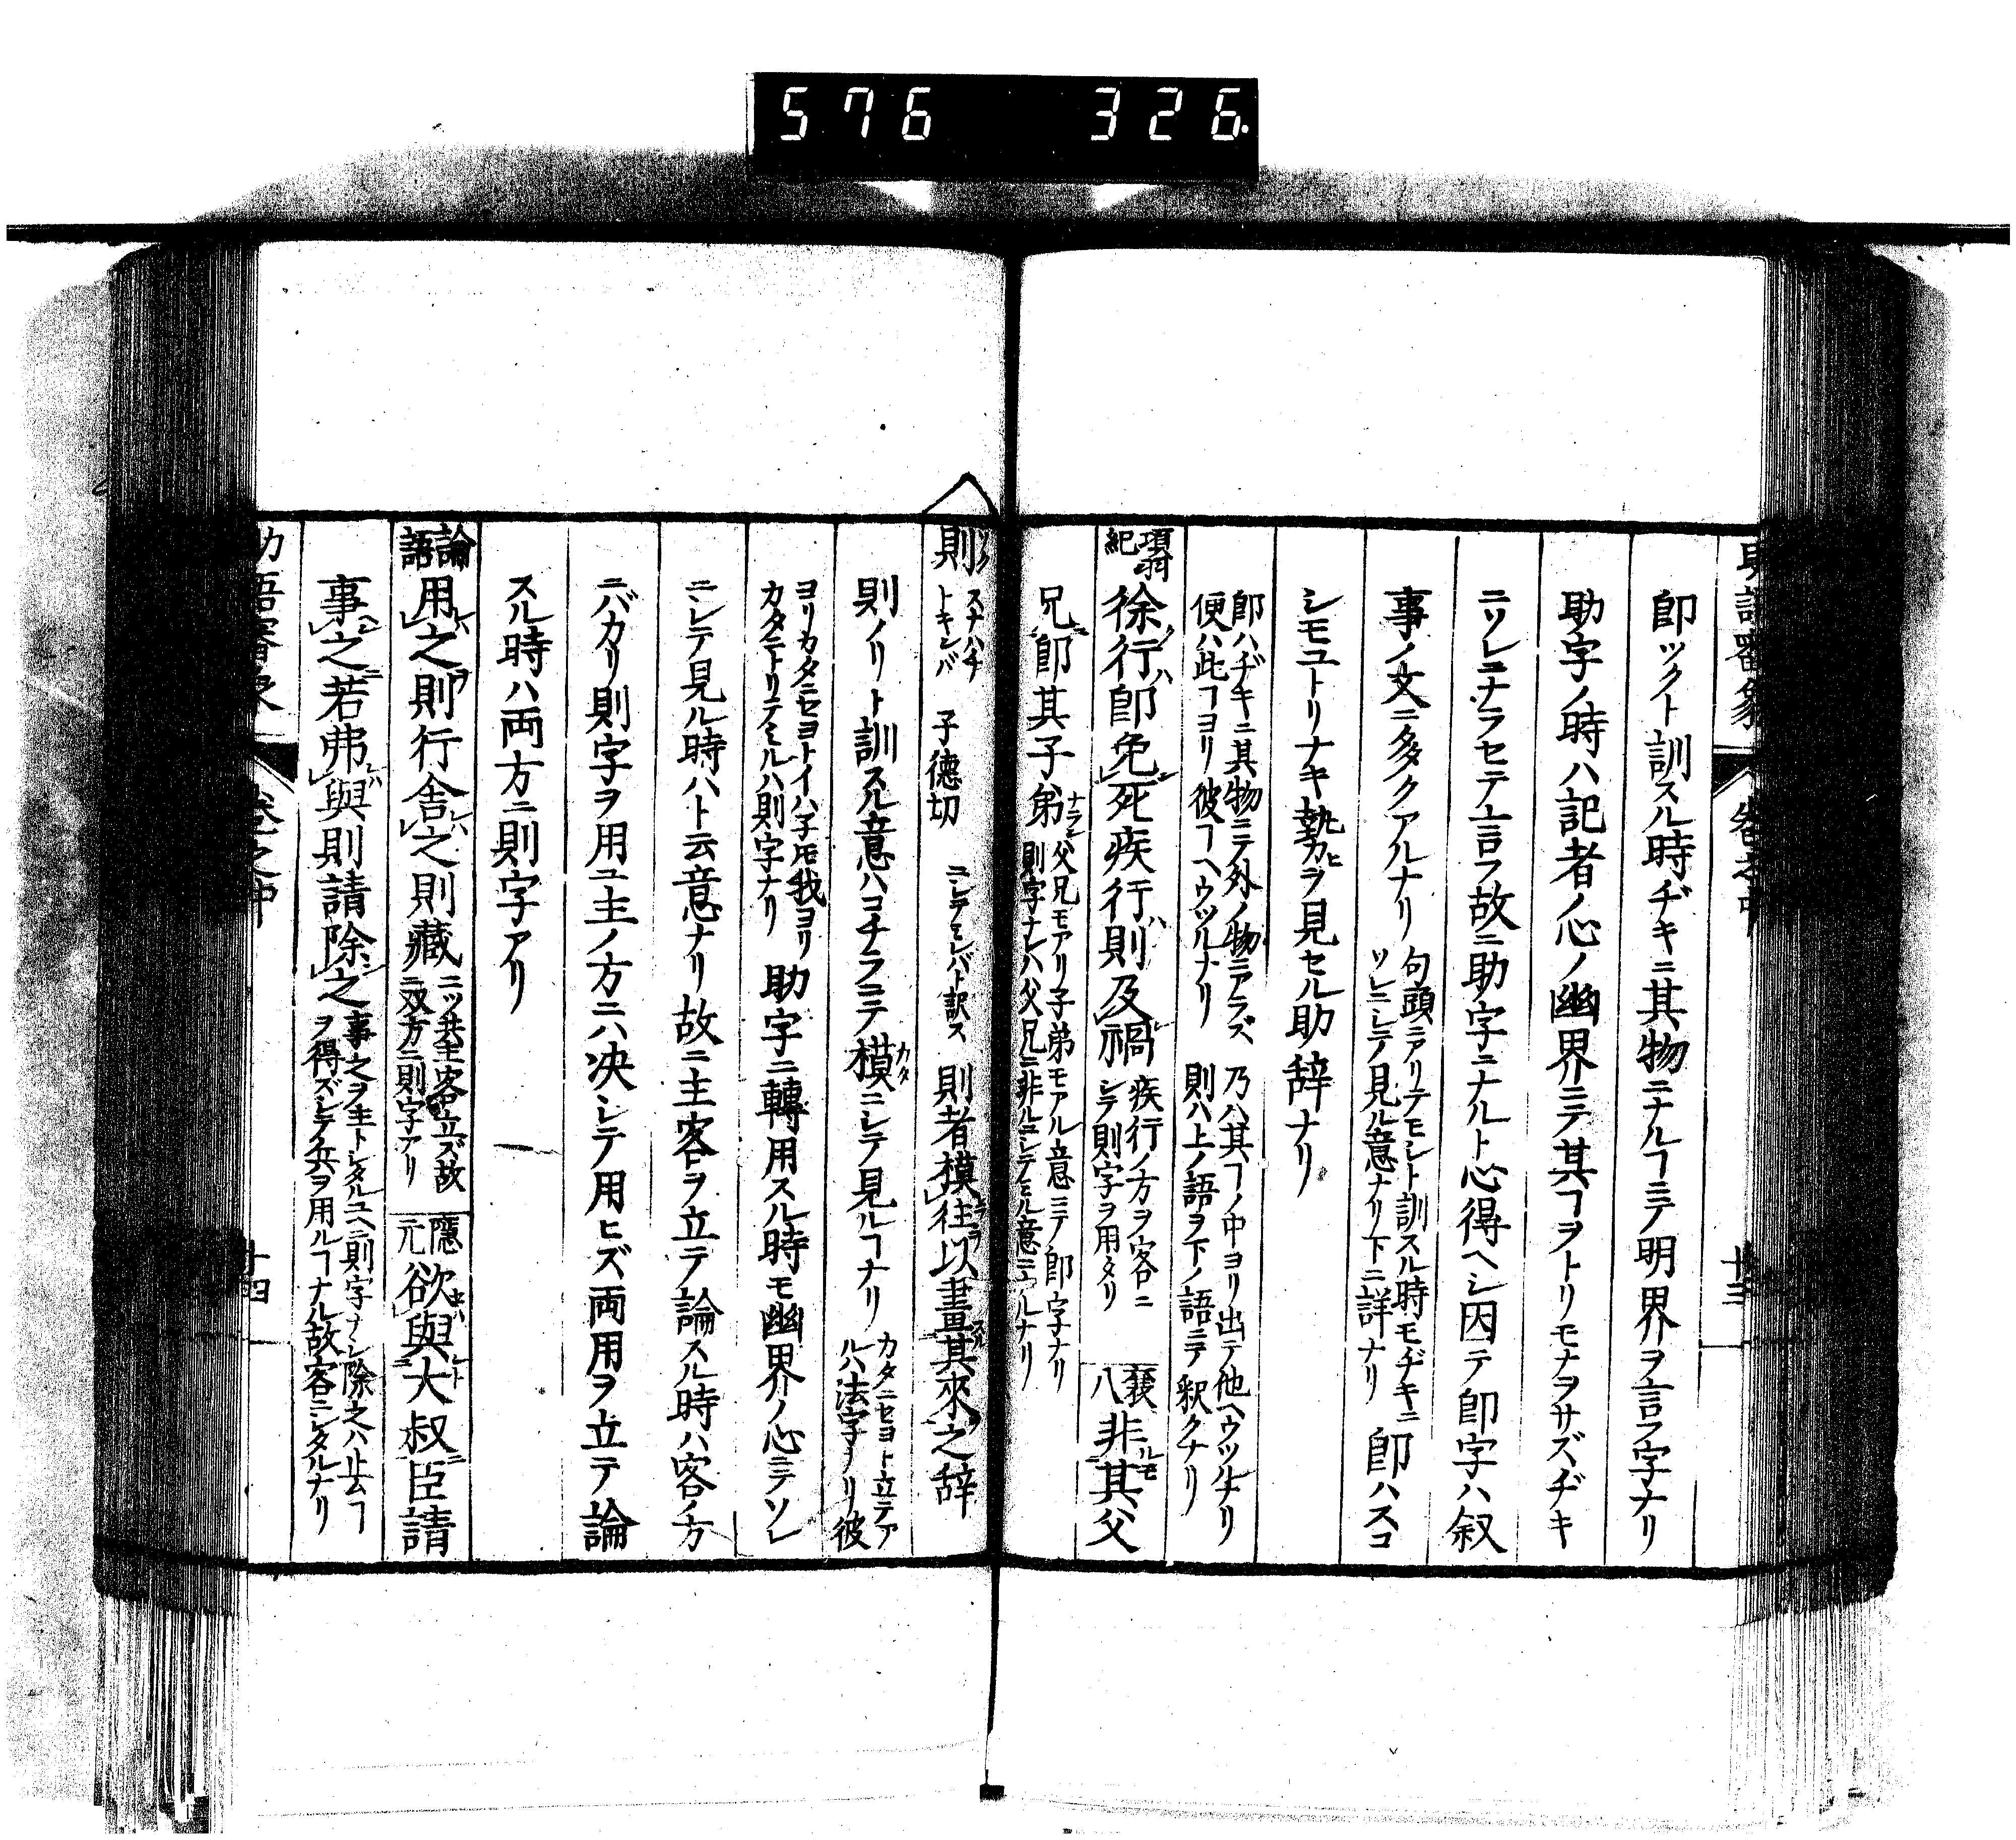 576 326.
卽ツクト訓スル時ヂキニ其物ニナルヿニテ明界ヲ言フ字ナリ
助字ノ時ハ記者ノ心ノ幽界ニテ其ヿヲトリモナヲサズヂキ
ニソレニナラセテ言フ故ニ助字ニナルト心得ヘシ因テ卽字ハ叙
事ノ文ニ多クアルナリ
句頭ニアリテモシト訓スル時モヂキニ
ソレニシテ見ル意ナリ下ニ詳ナリ
卽ハスコ
シモユトリナキ勢カヒヲ見セル助辞ナリ
卽ハヂキニ其物ニテ外ノ物ニアラズ
便ハ此ヿヨリ彼ヿヘウツルナリ
乃ハ其ヿノ中ヨリ出テ他ヘウツルナリ
則ハ上ノ語ヲ下ノ語ニテ釈クナリ
項羽紀
徐行卽免死疾行則及禍
疾行ノ方ヲ客ニ
シテ則字ヲ用タリ
襄八
非其父
兄卽其子弟
父兄モアリ子弟モアル意ニテ卽字ナリ
則字ナレハ父兄ニ非ルニシテミル意ニナルナリ
則 スナハチ トキンバ 子德切
ニシテミレバト訳ス
則者模往以畫其來之辞
則ノリト訓スル意ハコチラニテ模ニシテ見ルヿナリ
カタニセヨト立テア
ルハ法字ナリ彼
ヨリカタニセヨトイハ子ドモ我ヨリ
カタニトリテミルハ則字ナリ
助字ニ轉用スル時モ幽界ノ心ニテソレ
ニシテ見ル時ハト云意ナリ故ニ主客ヲ立テ論スル時ハ客ノ方
ニバカリ則字ヲ用ユ主ノ方ニハ决シテ用ヒズ両用ヲ立テ論
スル時ハ両方ニ則字アリ
論語
用之則行舎之則藏
二ツ共主客立ズ故
ニ双方ニ則字アリ
隱元
欲與大叔臣請
事之若弗與則請除之
事之ヲ主トシタルユヘニ則字ナシ除之ハ止ムヿ
ヲ得ズシテ兵ヲ用ルヿナル故客ニシタルナリ